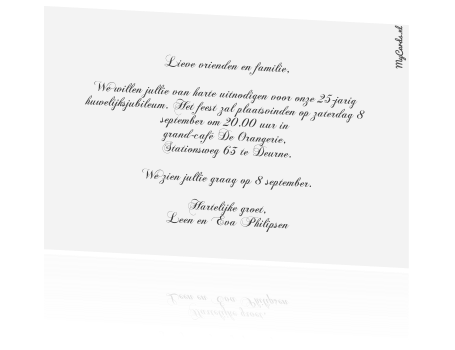 Lieve vrienden en familie,
We willen jullie van harte uitnodigen voor onze 25-jarig
huwelijksjubileum. Het feest zal plaatsvinden op zaterdag 8
september om 20.00 uur in
grand-café De Orangerie,
Stationsweg 65 te Deurne.
We zien jullie graag op 8 september.
Hartelijke groet,
Leen en Eva Philipsen
MyCards.nl